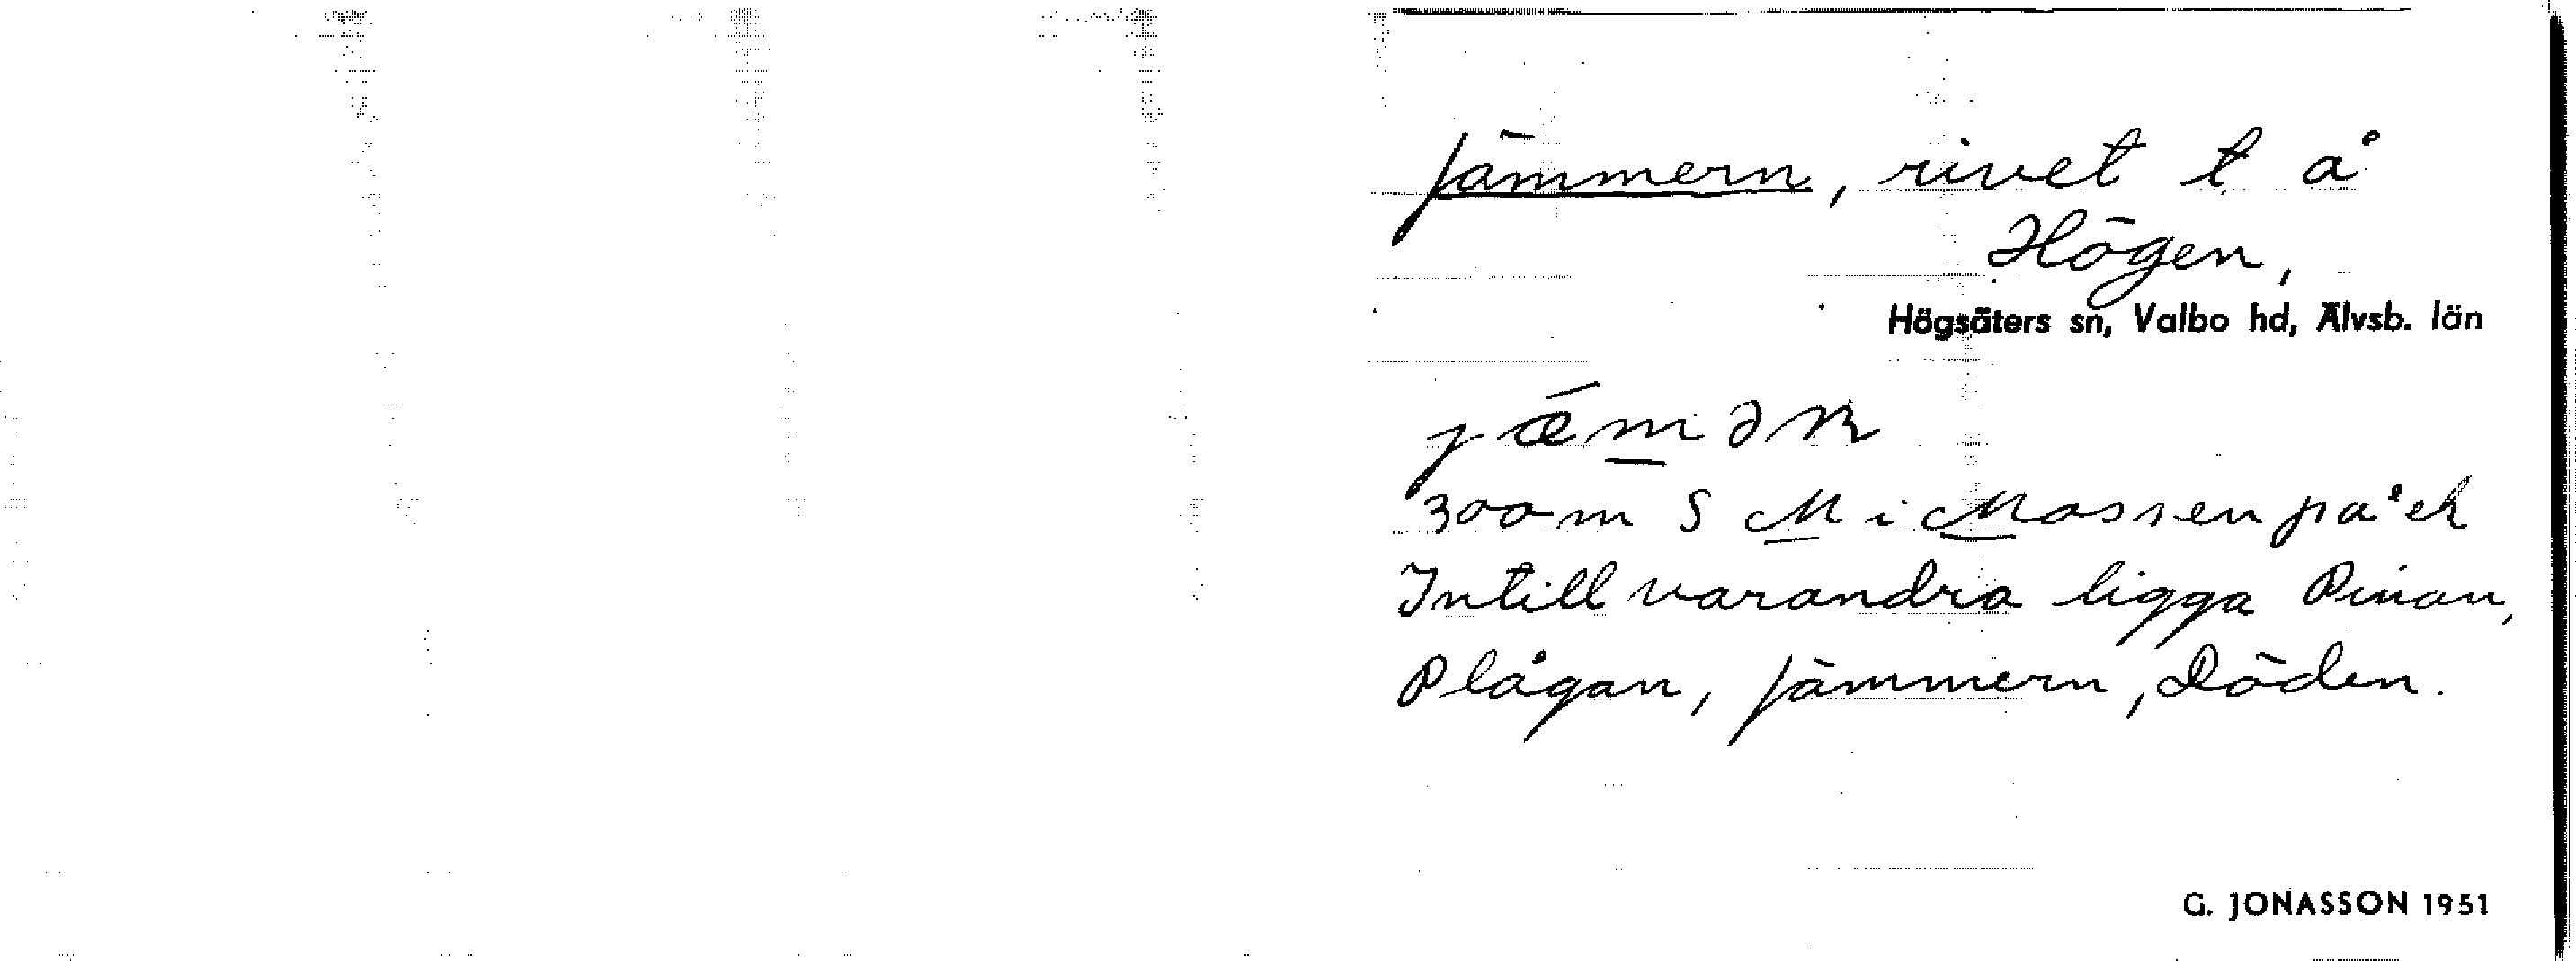 Jämmern, rivet t å
Högen,
Högsäters sn, Valbo hd, Älvsb. län
jǽmər
300 m S M i Mossen på ek
Intill varandra ligga Pinan,
Plågan, Jämmern, Döden.
G. JONASSON 1951